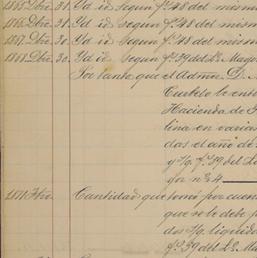 1885 Dbre. 31. Yd id segun fº 48 del mismo
1886 Dbre. 31. Yd id segun fº 48 del mism
1887. Dbre. 30. Yd id segun fº 48 del mismo
1888. Dbre. 30. Yd id segun fº 39 del Lº. Mayo
Por tanto que el Admor. D.
Curbelo le ent
Hacienda de
lina en varias
das el año de
y Sg. fº 39 del L
yor nº 4
Cantidad que tomó por cuen
que se le debe p
dos Sg. liquid
fº 39 del Lº. Ma